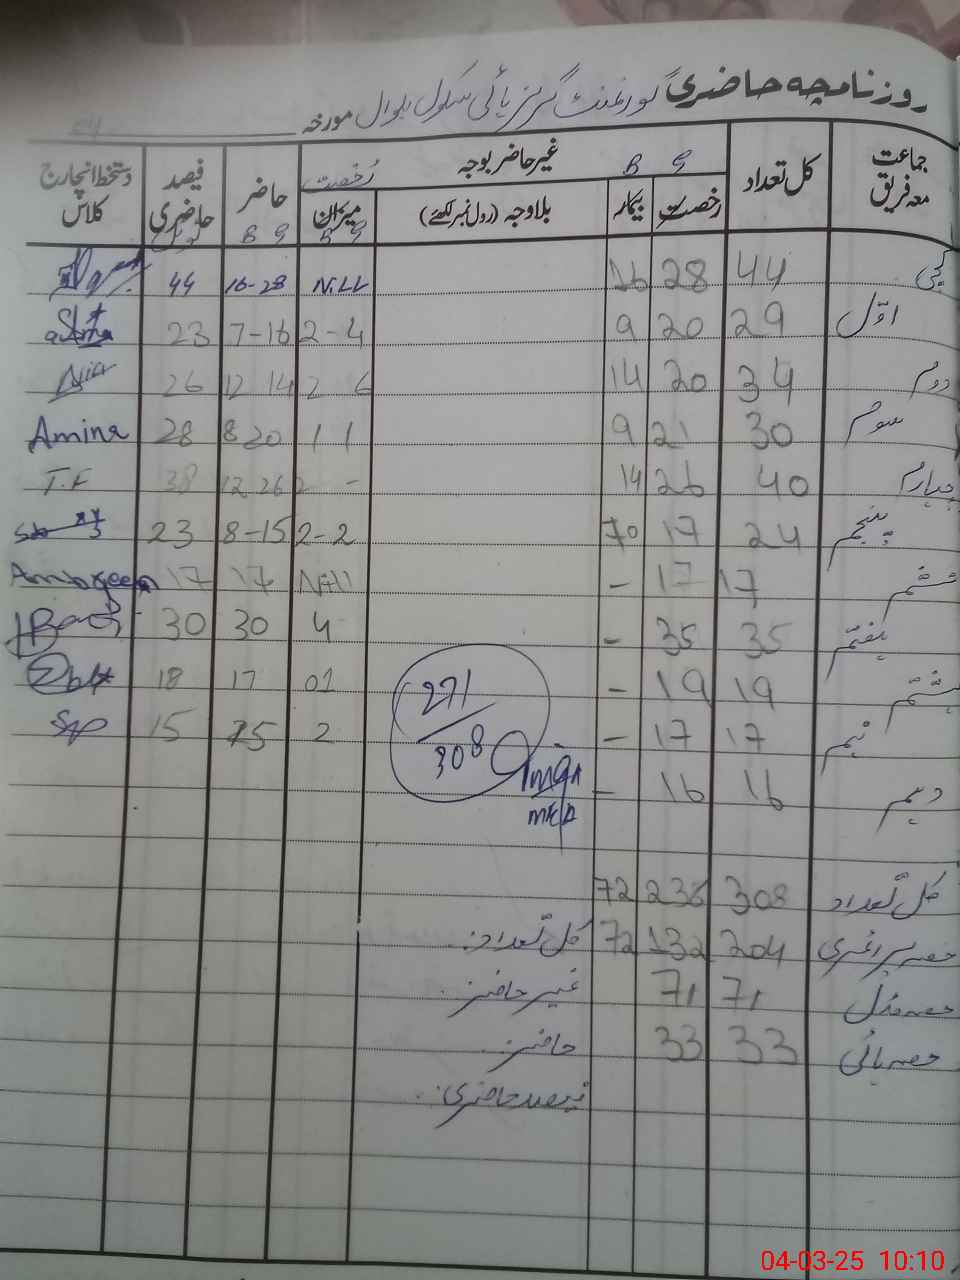 روزنامچہ حاضری گورنمنٹ گرلز ہائی سکول بلوال مورخہ 04
جماعت معہ فریق کل تعداد غیر حاضر بوجہ B G رخصت حاضر فیصد حاضری دستخط انچارج کلاس
رخصت بیمار بلاوجہ (رول نمبر لکھئے) میزان B G B G
کچی 44 28 16 Nill 16-28 44
اوّل 29 20 9 2-4 7-16 23
دوم 34 20 14 2 6 12 14 26 Alia
سوم 30 21 9 1 1 8 20 28 Amina
چہارم 40 26 14 2 - 12 26 38 T.F
پنجم 24 17 70 2-2 8-15 23
ششم 17 17 - Nill 17 17 Ambreen
ہفتم 35 35 - 4 30 30
ہشتم 19 19 - 01 17 18
نہم 17 17 - 2 15 15
دہم 16 16 -
271/308
کل تعداد 308 236 72
حصہ پرائمری 204 132 72 کل تعداد:
حصہ مڈل 71 71 غیر حاضر:
حصہ ہائی 33 33 حاضر:
فیصد حاضری:
04-03-25 10:10